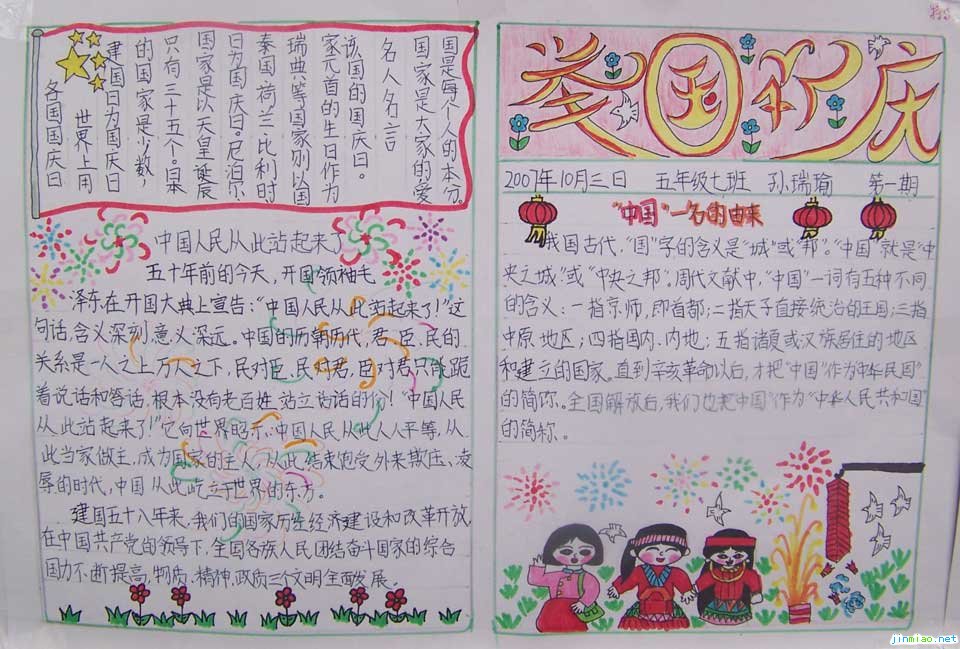 各国国庆日
世界上用
建国日为国庆日
的国家是少数，
只有三十五个。日本
国家是以天皇诞辰
日为国庆日。尼泊尔、
泰国、荷兰、比利时
瑞典等国家则以国
家元首的生日作为
该国的国庆日。
名人名言
国家是大家的爱
国是每个人的本分。
中国人民从此站起来了
五十年前的今天，开国领袖毛
泽东在开国大典上宣告：“中国人民从此站起来了！”这
句话，含义深刻，意义深远。中国的历朝历代，君、臣、民的
关系是一人之上万人之下，民对臣、民对君，臣对君只能跪
着说话和答话，根本没有老百姓站立说话的份！“中国人民
从此站起来了！”它向世界昭示，中国人民从此人人平等，从
此当家做主，成为国家的主人，从此，结束饱受外来欺压、凌
辱的时代，中国从此屹立于世界的东方。
建国五十八年来，我们的国家历经经济建设和改革开放，
在中国共产党的领导下，全国各族人民团结奋斗国家的综合
国力不断提高，物质、精神、政质三个文明全面发展。
举国欢庆
2007年10月三日 五年级七班 孙瑞瑜 第一期
“中国”一名的由来
我国古代，“国”字的含义是“城”或“邦”。“中国”就是“中
央之城”或“中央之邦”。周代文献中，“中国”一词有五种不同
的含义：一指京师，即首都；二指天子直接统治的王国；三指
中原地区；四指国内、内地；五指诸夏或汉族居住的地区
和建立的国家。直到辛亥革命以后，才把“中国”作为“中华民国”
的简称。全国解放后，我们也把“中国”作为“中华人民共和国”
的简称。
jinmiao.net